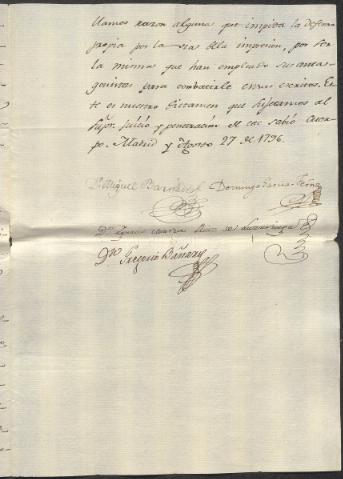 llamos razon alguna que impida la defensa
propia por la via dela impresion, por ser
la misma que han empleado sus antago-
guistas para combatirle en sus escritos. Es-
te es nuestro Dictamen que sujetamos al
Sup.or juicio y penetración de ese sabio Cuer-
po. Madrid y Agosto 27 de 1796.
D. Miguel Barnades Domingo Garcia Fern.z
D.n Ignacio Ruiz de Luzuriaga
D.n Gregorio Bañares